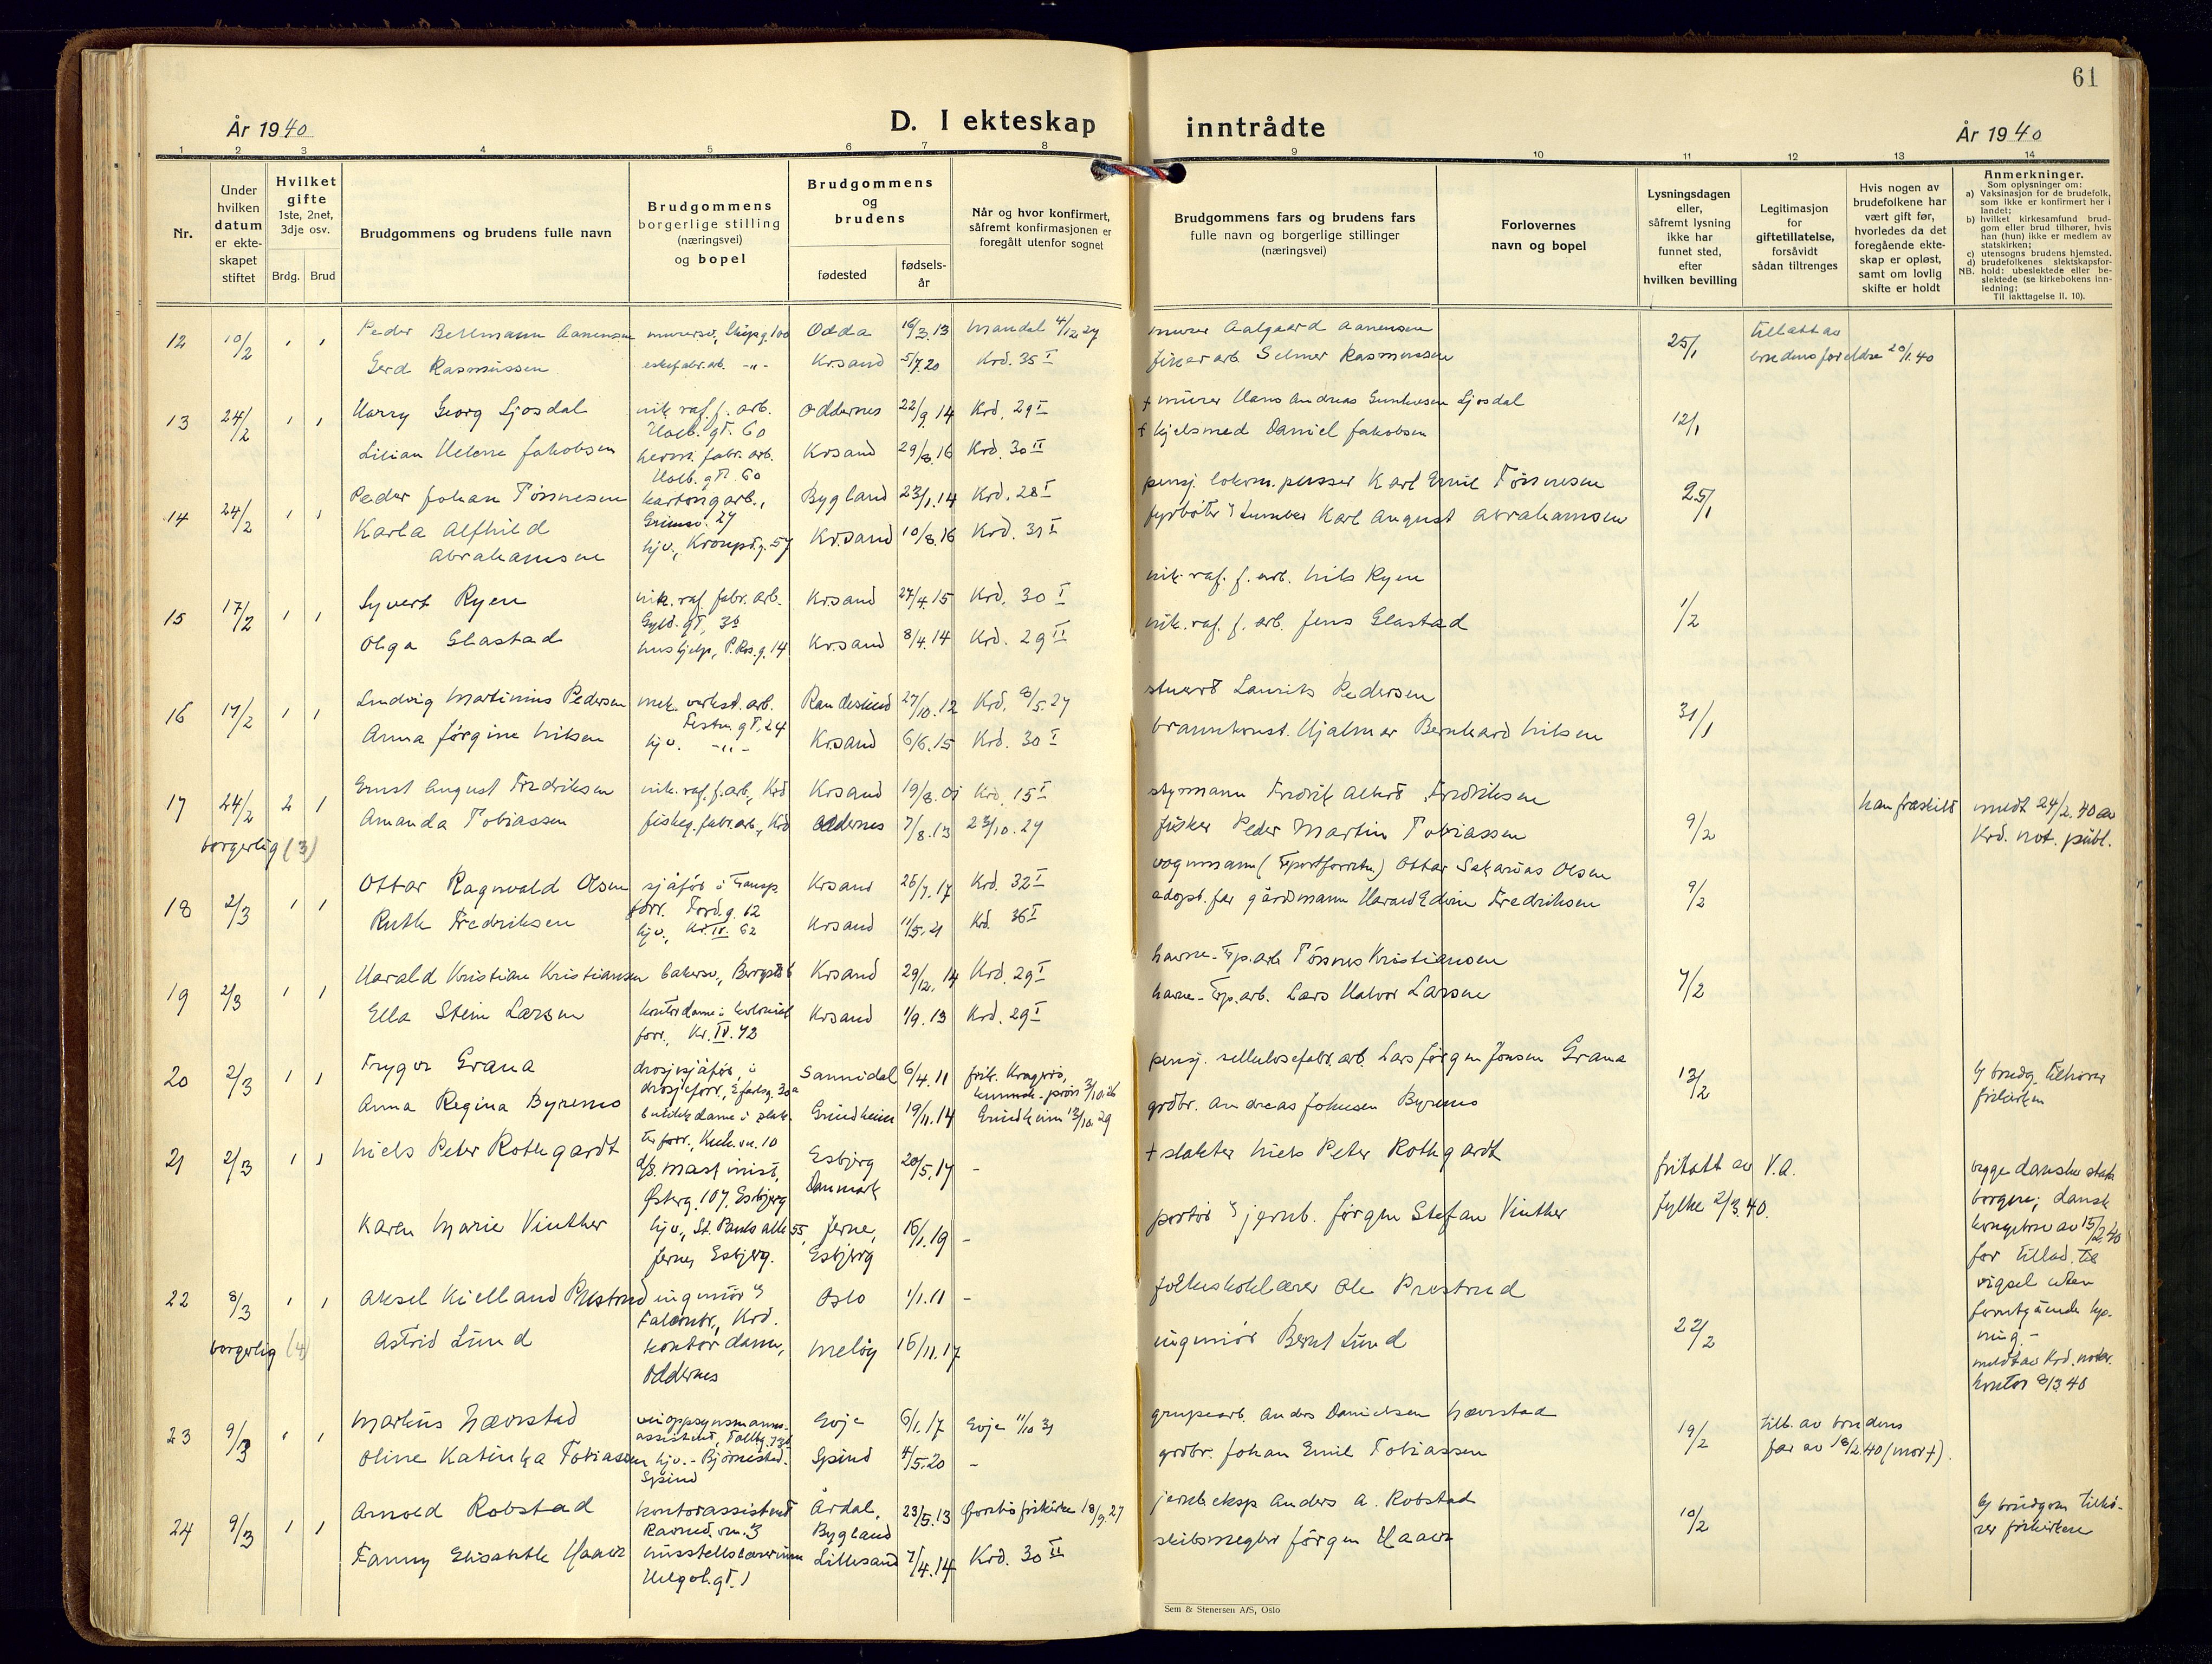 61
År 1940
D. I ekteskap
inntrådte
År 1940
1 2 3 4 5 6 7 8 9 10 11 12 13 14
Nr.
Under
hvilken
datum
er ekte-
skapet
stiftet
Hvilket
gifte
1ste, 2net,
3dje osv.
Brdg. Brud
Brudgommens og brudens fulle navn
Brudgommens
borgerlige stilling
(næringsvei)
og bopel
Brudgommens
og
brudens
fødested
fødsels-
år
Når og hvor konfirmert,
såfremt konfirmasjonen er
foregått utenfor sognet
Brudgommens fars og brudens fars
fulle navn og borgerlige stillinger
(næringsvei)
Forlovernes
navn og bopel
Lysningsdagen
eller,
såfremt lysning
ikke har
funnet sted,
efter
hvilken bevilling
Legitimasjon
for
giftetillatelse,
forsåvidt
sådan tiltrenges
Hvis nogen av
brudefolkene har
vært gift før,
hvorledes da det
foregående ekte-
skap er opløst,
samt om lovlig
skifte er holdt
Anmerkninger.
Som oplysninger om:
a) Vaksinasjon for de brudefolk,
som ikke er konfirmert her i
landet;
b) hvilket kirkesamfund brud-
gom eller brud tilhører, hvis
han (hun) ikke er medlem av
statskirken;
c) utensogns brudens hjemsted.
d) brudefolkenes slektskapsfor-
NB. hold: ubeslektede eller be-
slektede (se kirkebokens inn-
ledning;
Til iakttagelse II. 10).
12 10/2 1 1 Peder Bellmann Aanensen murersv., Skipsg. 100 Odda 16/3.13 Mandal 4/12 27 murer Aalgaard Aanensen 25/1 tillatt av
Gerd Rasmussen eskefabr.arb. -"- Kr.sand 5/7.20 Krd. 35 I fiskarb. Selmer Rasmussen brudens foreldre 20/1.40
13 24/2 1 1 Harry Georg Ljosdal nik. raf. f. arb. Oddernes 22/9.14 Krd. 29 I + murer Hans Andreas Gunhvesen Ljosdal 12/1
Holb. gt. 60
Lilian Helene Jakobsen herm. fabr. arb. Krsand 29/8.16 Krd. 30 II + kjelsmed Daniel Jakobsen
Holb. gt. 60
14 24/2 1 1 Peder Johan Tönnesen kartongarb., Bygland 23/1.14 Krd. 28 I pensj. lokom. pusser Karl Emil Tönnesen 25/1
Grimsv. 27
Karla Alfhild hjv., Kronpr.g. 57 Kr.sand 10/8.16 Krd. 31 I fyrböter Karl August Abrahamsen
Abrahamsen
15 17/2 1 1 Syvert Ryen nik. raf. fabr. arb. Kr.sand 27/4.15 Krd. 30 I nik. raf. f. arb. Nils Ryen 1/2
Gyld. gt. 36
Olga Glastad hushjelp, P.Ros.g. 14 Kr.sand 8/4.14 Krd. 29 II nik. raf. f. arb. Jens Glastad
16 17/2 1 1 Ludvig Martinius Pedersen mek. verkst. arb. Randesund 27/10.12 Krd. 8/5.27 stuert Laurits Pedersen 31/1
Festn. gt. 24
Anna Jörgine Nilsen hjv. -"- Kr.sand 6/6.15 Krd. 30 I brannkonst. Hjalmar Bernhard Nilsen
17 24/2 2 1 Ernst August Fredriksen nik. raf. f. arb., Krd Krsand 19/8.01 Krd. 15 I styrmann Fredrik Albert Fredriksen 9/2 han fraskilt meldt 24/2.40 av
Amanda Tobiassen fiskeg.fabr.arb., Krd Oddernes 7/8.13 23/10.27 fisker Peder Martin Tobiassen Krd. not. publ.
borgerlig (3)
18 2/3 1 1 Ottar Ragnvald Olsen sjåför i transp. Krsand 26/7.17 Krd. 32 I vognmann (Tportforretn) Ottar Sakarias Olsen 9/2
forr. Tord.g. 62
Ruth Fredriksen hjv., Kr. IV. 62 Krsand 11/5.21 Krd. 36 I adopt. far gårdsmann Harald Edvin Fredriksen
19 2/3 1 1 Harald Kristian Kristiansen bakersv., Bergstö 6 Krsand 29/12.14 Krd. 29 I havne-Tp.arb. Tönnes Kristiansen 7/2
Ella Stein Larsen kontordame i kolonial Krsand 1/9.13 Krd. 29 I havne-Tp.arb. Lars Halvor Larsen
forr., Kr. IV. 72
20 2/3 1 1 Trygve Grana drosjesjåför, i Sannidal 6/4.11 frik. Kragerö, pensj. cellulosefabr.arb. Lars Jörgen Jonsen Grana 13/2 b) brudg. tilhörer
drosjeforr., 3/10.26 frikirken
Anna Regina Byremo butikkdame i Grindheim 19/11.14 Grindheim 13/10.29 grdbr. Andreas Johnsen Byremo
forr., Kirk.vn. 10
21 2/3 1 1 Niels Peter Rothgardt d/s. maskinist, Esbjerg 20/5.17 - + slakter Niels Peter Rothgardt fritatt av V.A. begge danske stats
Österg. 107, Esbjerg Danmark fylke 2/3.40. borgere; dansk
Karen Marie Vinther hjv., St. Pauls allé 55, Jerne, 16/1.19 - portör v/jernb. Jörgen Stefan Vinther kongebrev av 15/2.40
Jerne, Esbjerg. Esbjerg for tillad. til
vigsel uten
forutgående lys-
ning.-
22 8/3 1 1 Aksel Kielland Prestrud ingeniör v/ Oslo 1/1.11 - folkeskolelærer Ole Prestrud 22/2
Falconbr., Krd.
Astrid Lund kontordame, Melöy 16/11.17 ingeniör Bernt Lund meldt av Krd. notar.
borgerlig (4) Oddernes kontor 8/3 40
23 9/3 1 1 Markus Nævrstad veioppsynsmanns- Evje 6/1.17 Evje 11/10 31 grubearb. Anders Danielsen Nævrstad 19/2 till. av brudens
assistent,
Oline Katinka Tobiassen hjv. - Björnestad. Spind 4/5.20 - grdbr. Johan Emil Tobiassen far av 18/2 40 (mor +).
Spind
24 9/3 1 1 Arnold Robstad kontorassistent Årdal, 23/5.13 frikirke 18/9.27 jernb.eksp Anders A. Robstad 10/2 b) brudgom tilhö-
Ravned. vn. 3 Bygland rer frikirken
Fanny Elisabeth Haaer husstellslærerinne Lillesand 7/4.14 Krd. 30 II skibsmegler Jörgen Haaer
Helgol. gt. 1
Sem & Stenersen A/S, Oslo